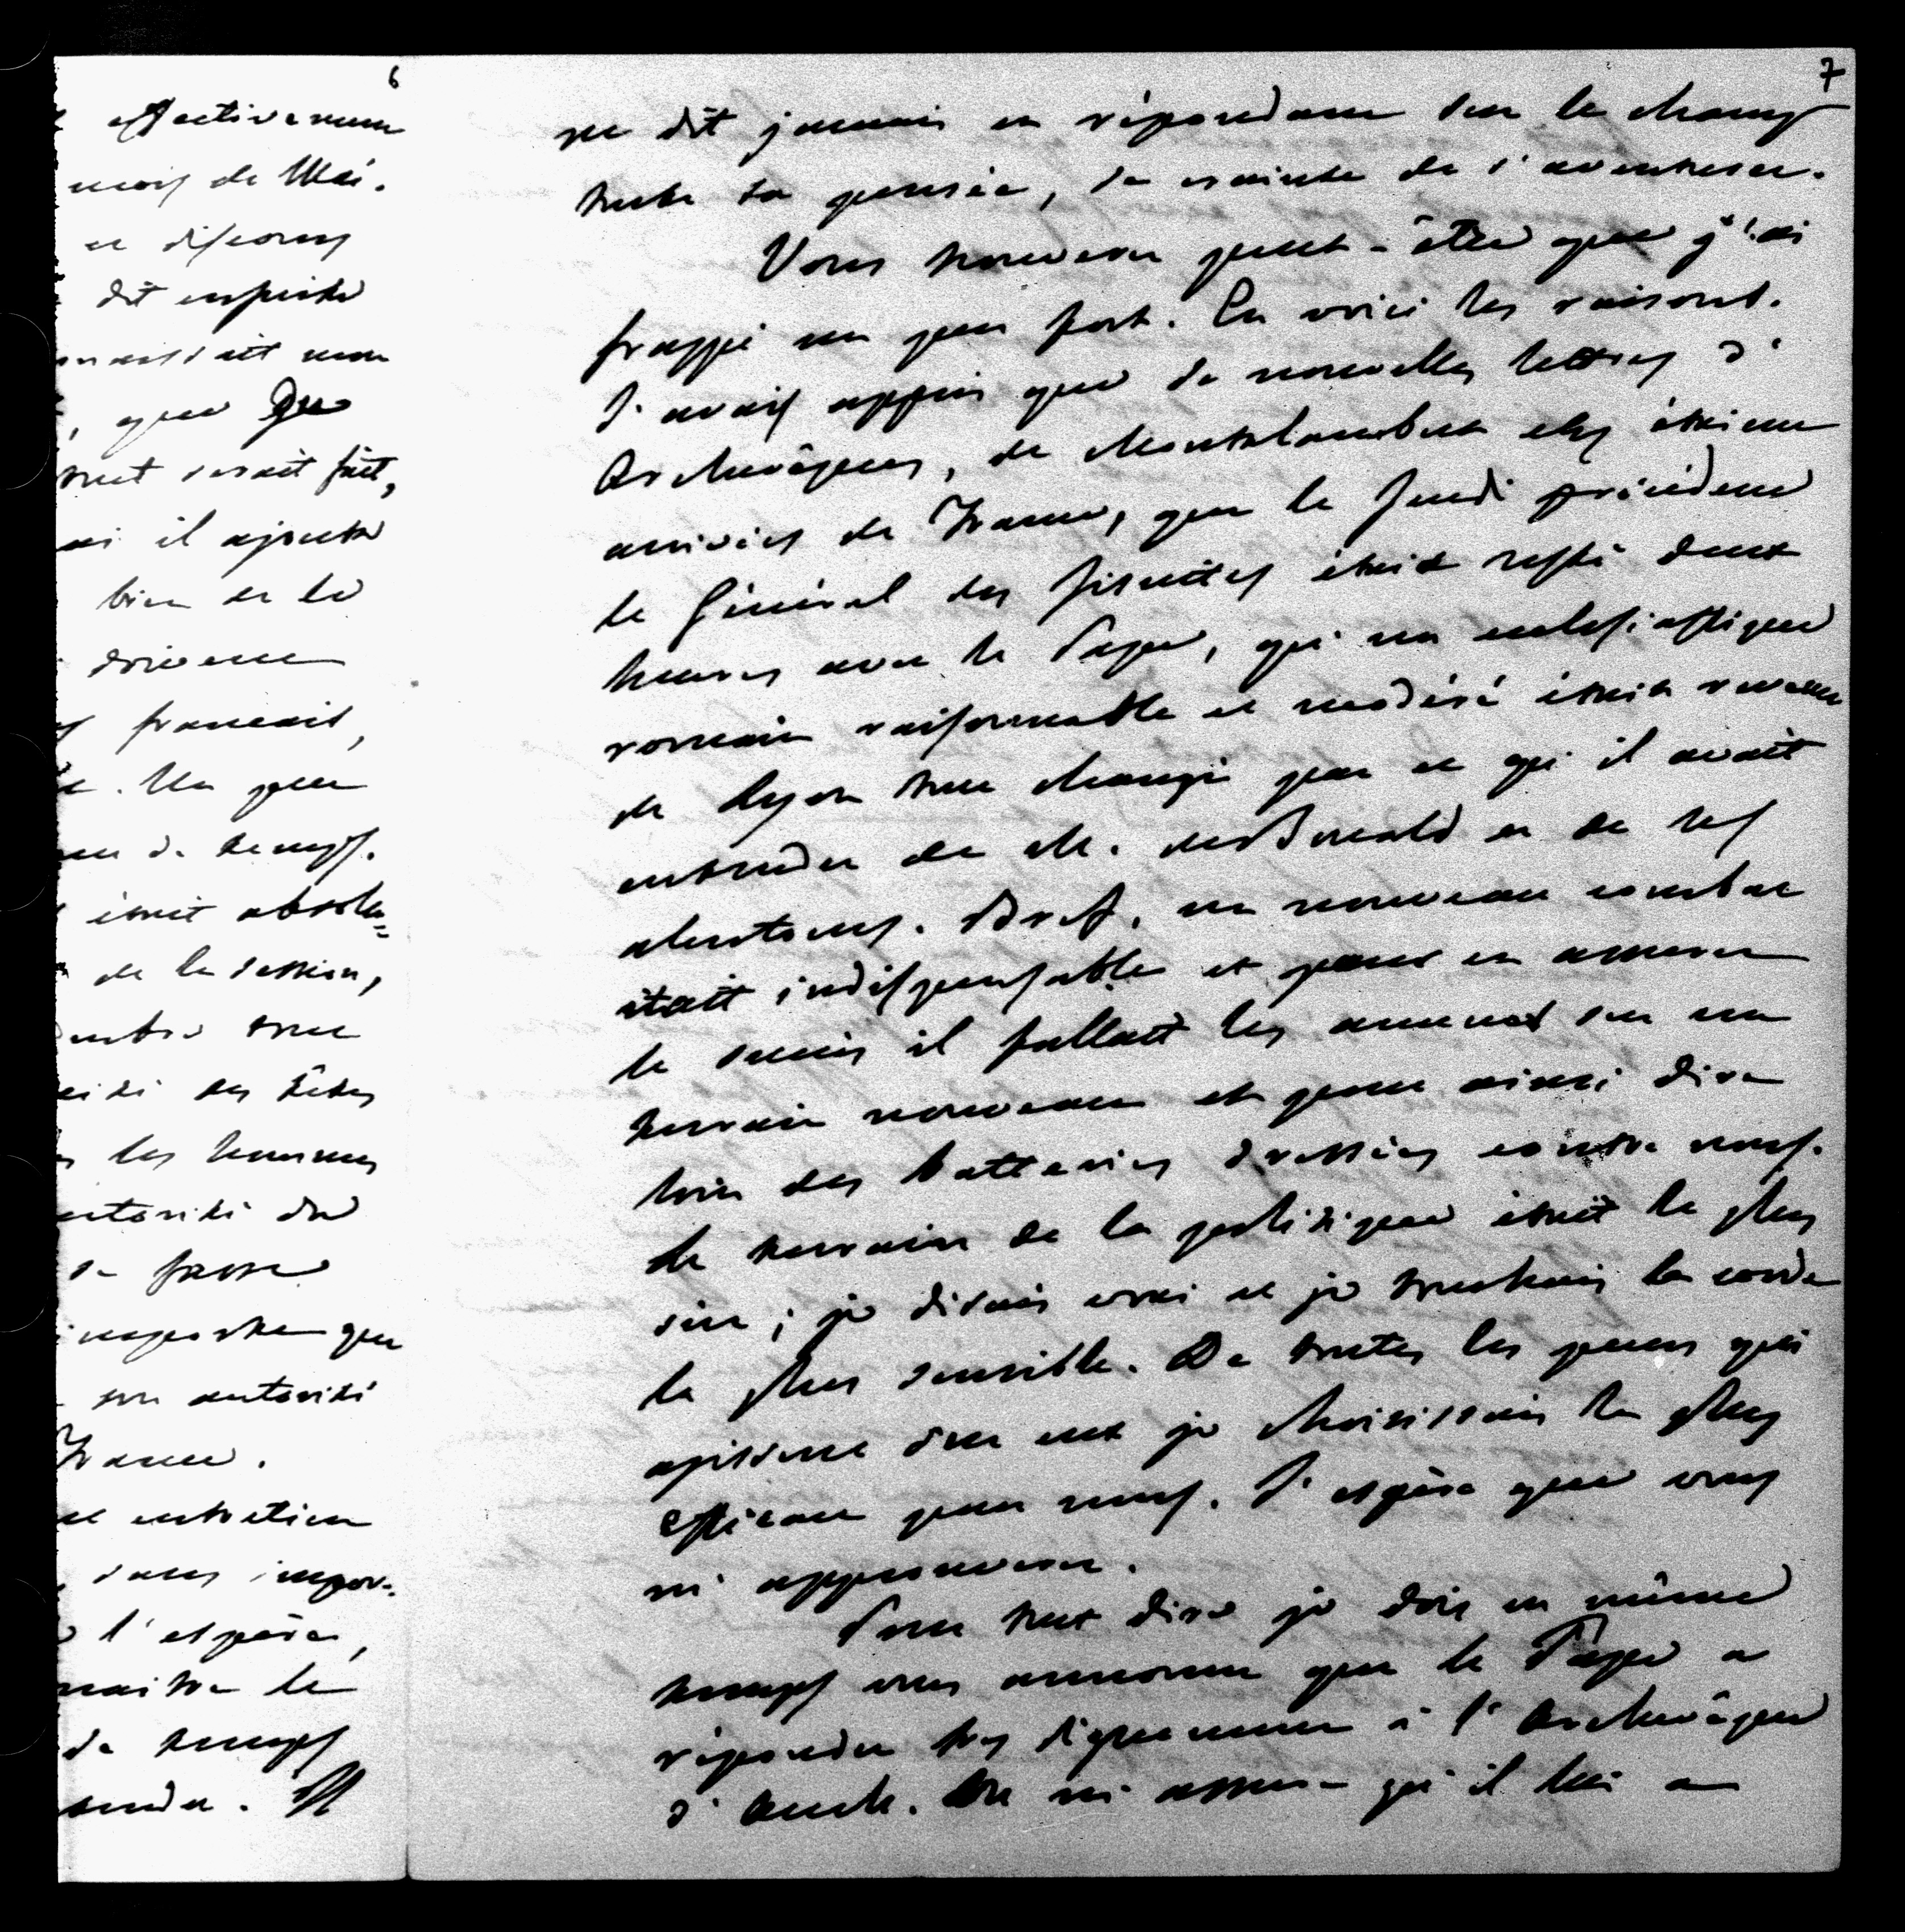 6
effectivement
mois de Mai.
ce discours
dit ensuite
connaissait mon
, que Que
tout serait fait,
il ajouta
bien de le
doivent
français,
. Un peu
de temps.
était absolu=
de la session,
contre tout
des têtes
les hommes
autorité du
se passe
importe que
son autorité
France.
cet entretien
sans impor-
l'espère,
naître le
de temps
Il
7
ne dit jamais en répondant sur le champ
toute sa pensée, de crainte de s'aventurer.
Vous trouverez peut-être que j'ai
frappé un peu fort. En voici les raisons.
J'avais appris que de nouvelles lettres d'
Archevêques, de Montalembert etc étaient
arrivées de France, que le Jeudi précédent
le Général des Jésuites était resté deux
heures avec le Pape, qu'un ecclésiastique
romain raisonnable et modéré était revenu
de Lyon tout changé par ce qu'il avait
entendu de M. de Bonald et de ses
alentours. Bref, un nouveau combat
était indispensable et pour en assurer
le succès il fallait les amener sur un
terrain nouveau et pour ainsi dire
loin des batteries dressées contre nous.
Le terrain de la politique était le plus
sûr; je disais vrai et je touchais la corde
la plus sensible. De toutes les peurs qui
agissent sur eux je choisissais la plus
efficace pour nous. J'espère que vous
m'approuverez.
Pour tout dire je dois en même
temps vous annoncer que le Pape a
répondu très dignement à l'Archevêque
d'Auch. On m'assure qu'il lui a